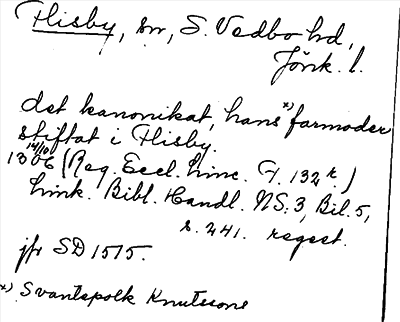 Flisby, sn, S. Vedbo hd,
Jönk. l.
det kanonikat, hans x) farmoder
stiftat i Flisby.
14/10
1306 (Reg. Eccl. Linc. F. 132 r.)
Link. Bibl. Handl. NS:3, Bil. 5,
s. 241. regest.
jfr SD 1575.
x) Svantepolk Knutssons